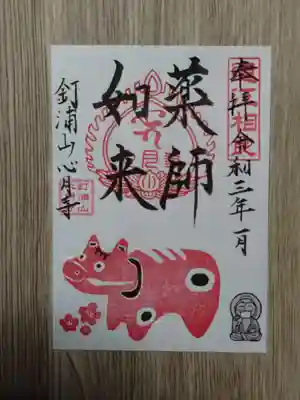 奉拝 令和三年一月
薬師
如来
釘浦山 心月寺